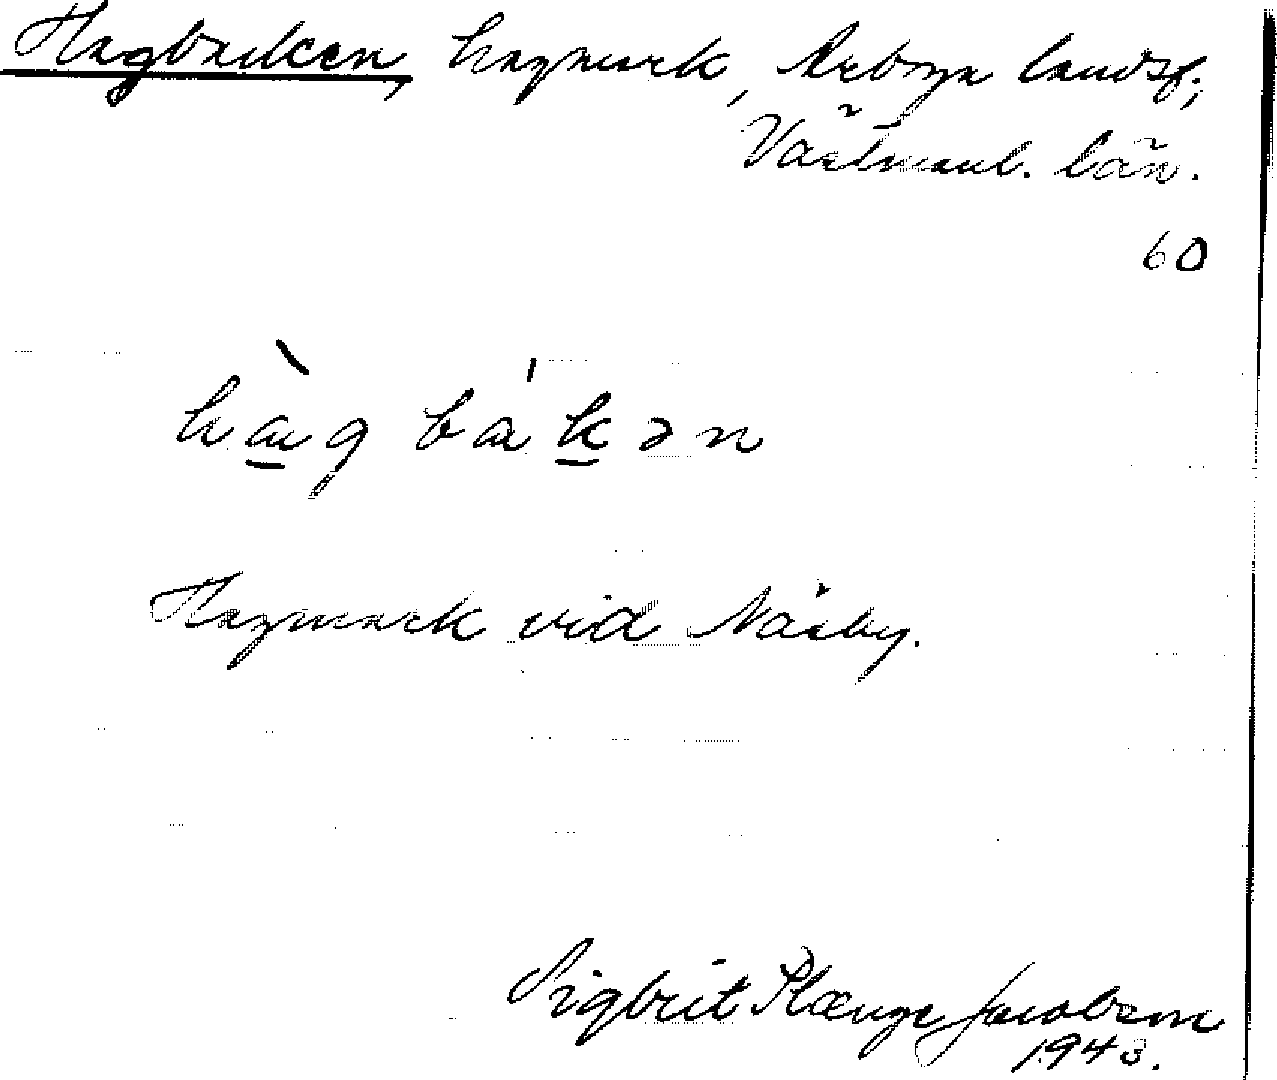 Hagbacken, hagmark, Arboga landsf.,
Västmanl. län.
60
hàg bákən
Hagmark vid Näsby.
Sigbrit Plænge Jacobson
1943.